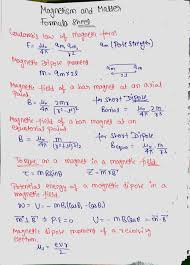 Magnetism and Matter
Formula Sheet
Coulomb's law of magnetic force
F = μ₀/4π qm qm/r² qm (Pole Strength)
Magnetic Dipole moment
m = qm × 2l
Magnetic field of a bar magnet at an axial point
B = μ₀/4π 2m for short Dipole
Magnetic field of a bar magnet at an equatorial point
B = μ₀/4π m for short Dipole
Torque on a magnet in a magnetic field
τ = mB sinθ
Potential energy of a magnetic dipole in a magnetic field
W = U = -mB(cosθ₂ - cosθ₁)
Magnetic dipole moment of a revolving electron.
μ = evr/2